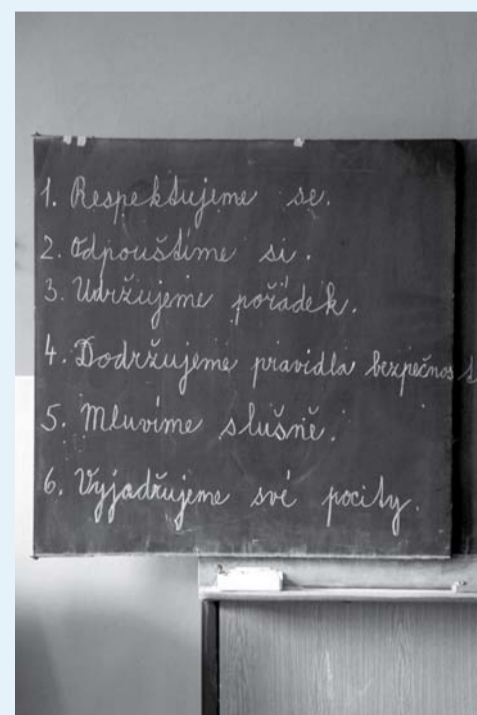 1. Respektujeme se.
2. Odpouštíme si.
3. Udržujeme pořádek.
4. Dodržujeme pravidla bezpečnost
5. Mluvíme slušně.
6. Vyjadřujeme své pocity.